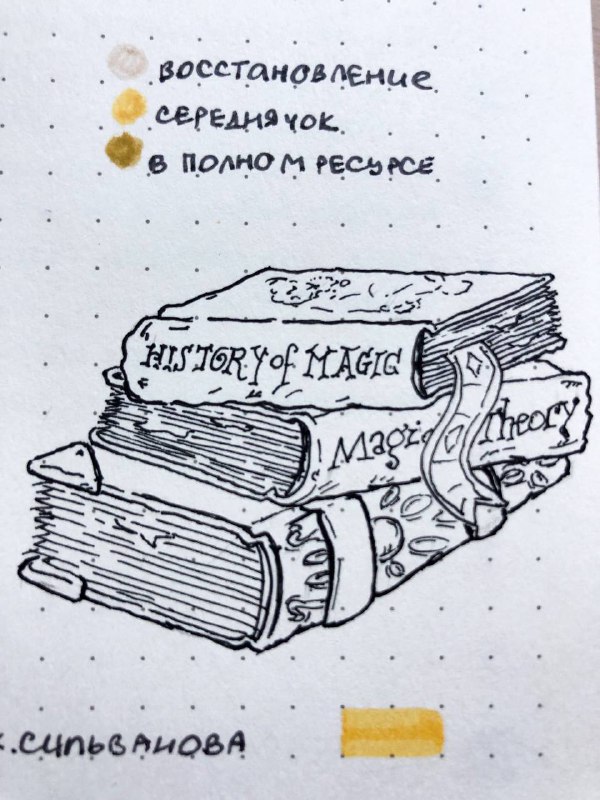 ВОССТАНОВЛЕНИЕ
СЕРЕДНЯЧОК
В ПОЛНОМ РЕСУРСЕ
HISTORY of MAGIC
Magic Theory
К.СИЛЬВАНОВА